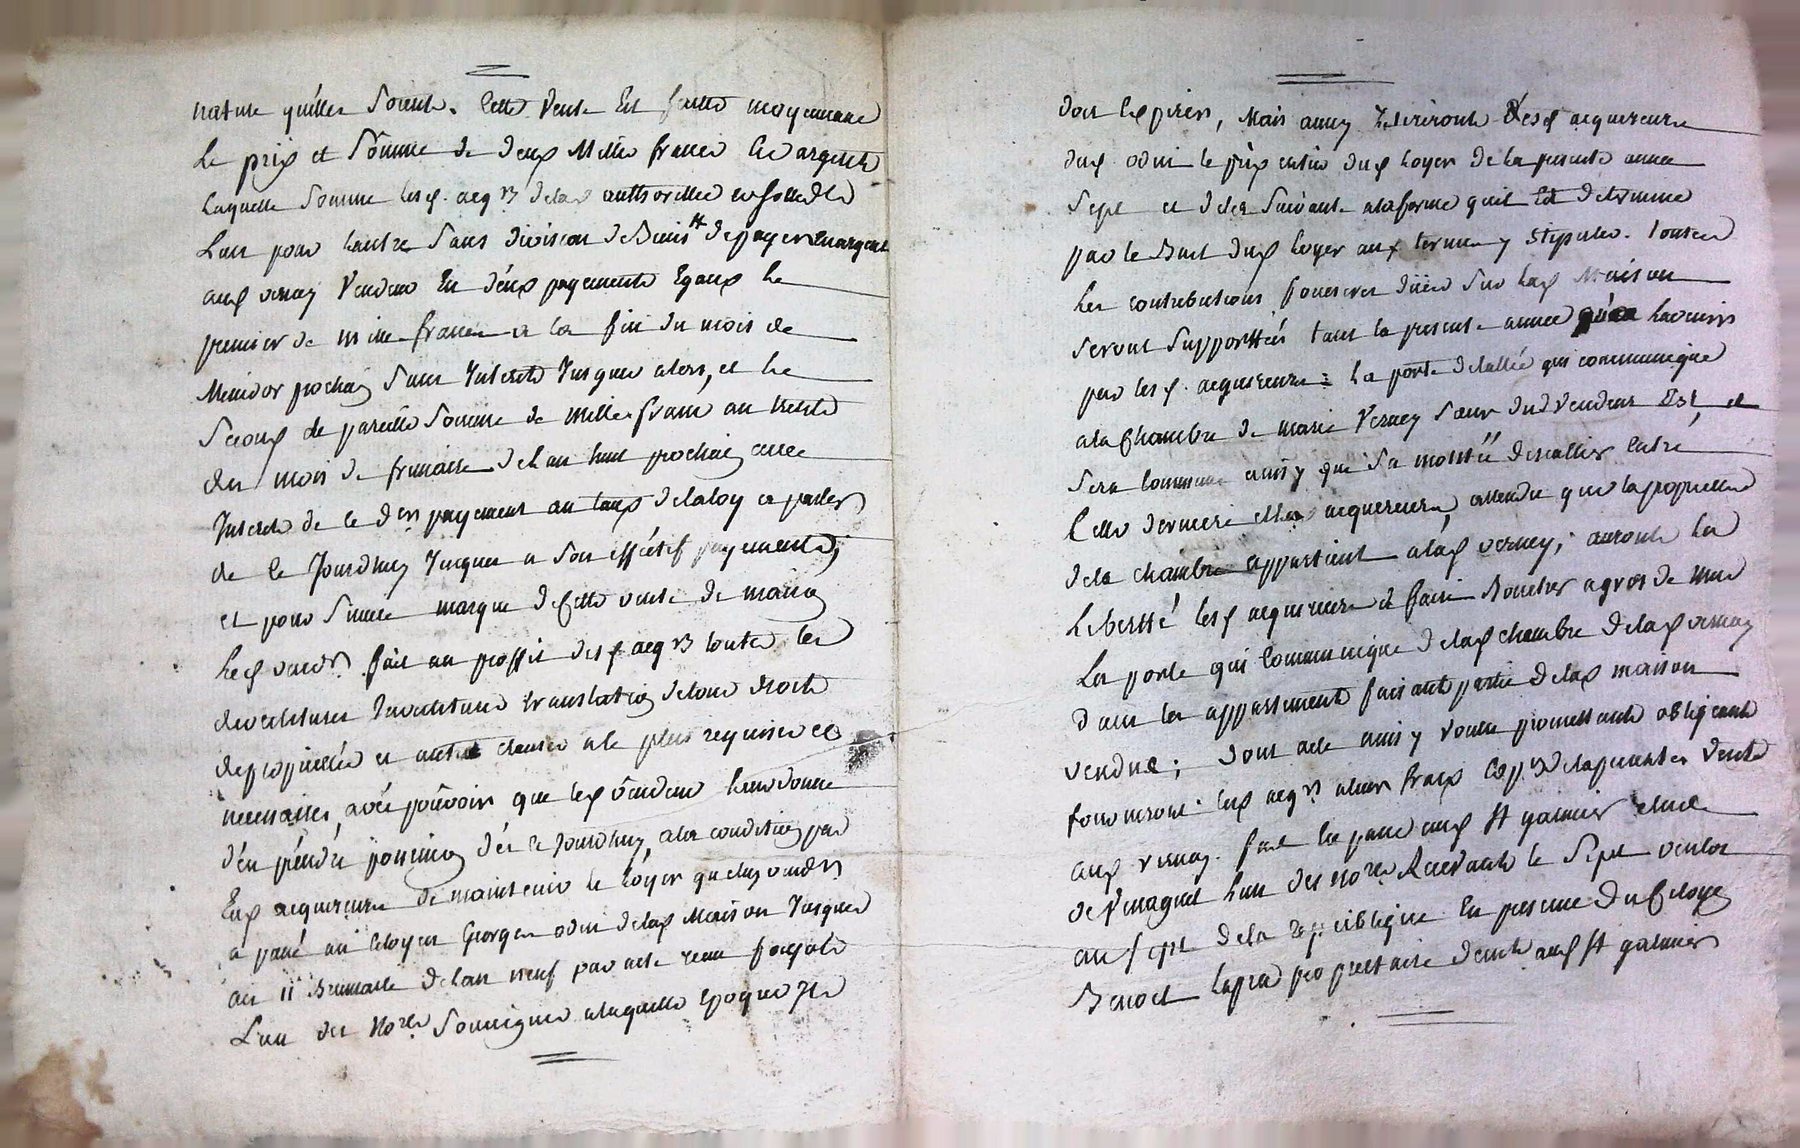 nature quelles soient. Cette vente est faitte moyennant
Le prix et somme de deux Mille francs En argent
Laquelle somme lesd. acq.rs delad authorittée en solidité
L'un pour l'autre sans division de Biens de payer en argent
aud verney Vendeur En deux payements Egaux Le
premier de mille francs a la fin du mois de
Messidor prochain sans Interets Jusques alors, et Le
Second de pareille somme de mille francs au trente
du mois de frimaire de l'an huit prochain avec
Interets de ce d.er payement au taux de la loy a partir
de ce Jourdhuy Jusques a son effectif payement;
et pour marque de cette vente de maison
Led vend.r fait au proffit desd acq.rs toutes les
devestitures Investitures translation de tous droits
de propriettée et autres clauses a le plus requises et
necessaires, avec pouvoir que led vendeur leur donne
d'en prendre possession dés ce Jourdhuy, ala condition par
Eux acquereurs de maintenir le loyer que led vend.r
a passé au Citoyen George odin delad Maison Jusques
au 11 Brumaire de l'an neuf par acte recu
L'un des No.res Soussignés a laquelle Epoque Il
doit Expirer, Mais aussy Retireront Lesd acquereurs
dud. odin le prix entier dud loyer de la presente année
Sept et des Suivants ala forme quil Est determiné
par le Bail dud loyer aux termes y stipulés. Toutes
Les contributions foncieres düés sur lad Maison
seront Supporttés tant la presente année qua Lavenir
par lesd. acquereurs: La porte de lallée qui communique
ala Chambre de marie Verney Sœur dud vendeur Est et
sera Commune ainsy que sa montée descallier Entre
Cette derniere et les acquereurs, attendu que la propriettée
dela chambre appartient alad verney; auront La
Libertté lesd acquereurs de faire Boucher a gros de mur
La porte qui Communique delad chambre delad verney
dans les appartements faisant partie delad maison
vendue; dont acte ainsy voulu promettant obligeant
fourniront lesd acq.rs a leurs frais Exp.on de la presente vente
aud verney. fait Et passé aud St galmier etude
de Vinagnet L'un des No.res Recevants le sept ventose
an sept dela republique En presence du Citoyen
Benoit Lapra proprietaire demt aud St galmier